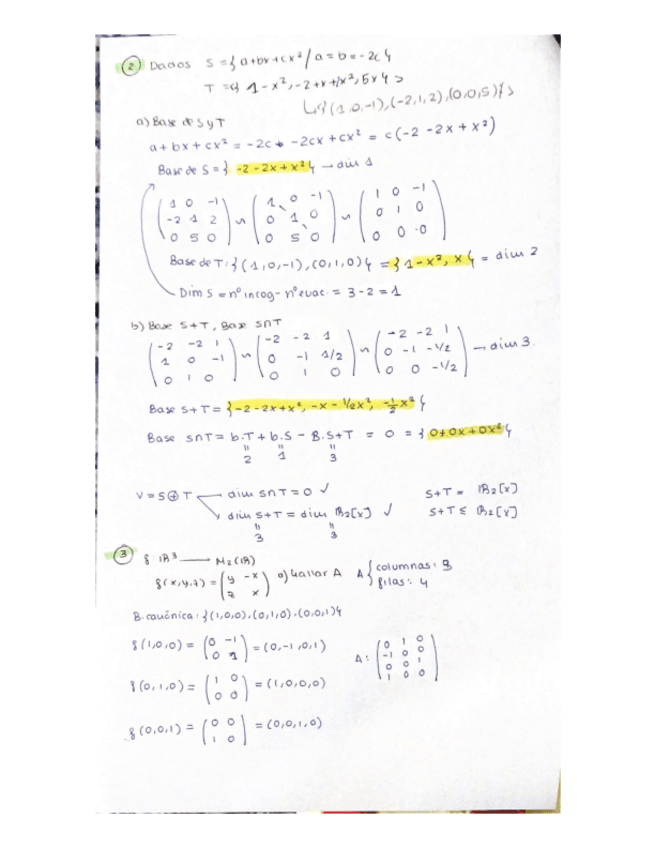 ② Dados S = { a+bx+cx² / a=b=-2c }
T = < { 1-x², -2+x+2x², 5x } >
↳ < { (1,0,-1), (-2,1,2), (0,0,5) } >
a) Base de S y T
a+bx+cx² = -2c + -2cx + cx² = c(-2-2x+x²)
Base de S = { -2-2x+x² } → dim 1
( 1 0 -1 ) ~ ( 1 0 -1 ) ~ ( 1 0 -1 )
( -2 1 2 ) ( 0 1 0 ) ( 0 1 0 )
( 0 5 0 ) ( 0 5 0 ) ( 0 0 0 )
Base de T: { (1,0,-1), (0,1,0) } = { 1-x², x } = dim 2
Dim S = nº incog - nº evac. = 3-2 = 1
b) Base S+T, Base S∩T
( -2 -2 1 ) ~ ( -2 -2 1 ) ~ ( -2 -2 1 ) → dim 3.
( 1 0 -1 ) ( 0 -1 1/2 ) ( 0 -1 -1/2 )
( 0 1 0 ) ( 0 1 0 ) ( 0 0 -1/2 )
Base S+T = { -2-2x+x², -x-1/2x², -1/2x² }
Base S∩T = b.T + b.S - B.S+T = 0 = { 0+0x+0x² }
" " "
2 1 3
V = S⊕T → dim S∩T = 0 ✓ S+T = ℝ₂[x]
→ dim S+T = dim ℝ₂[x] ✓ S+T ≤ ℝ₂[x]
" "
3 3
③ f ℝ³ → M₂(ℝ)
f(x,y,z) = ( y -x ) a) Hallar A A { columnas: 3
( z x ) filas: 4
B. canónica: { (1,0,0), (0,1,0), (0,0,1) }
f(1,0,0) = ( 0 -1 ) = (0,-1,0,1)
( 0 1 )
A: ( 0 1 0 )
( -1 0 0 )
( 0 0 1 )
( 1 0 0 )
f(0,1,0) = ( 1 0 ) = (1,0,0,0)
( 0 0 )
f(0,0,1) = ( 0 0 ) = (0,0,1,0)
( 1 0 )